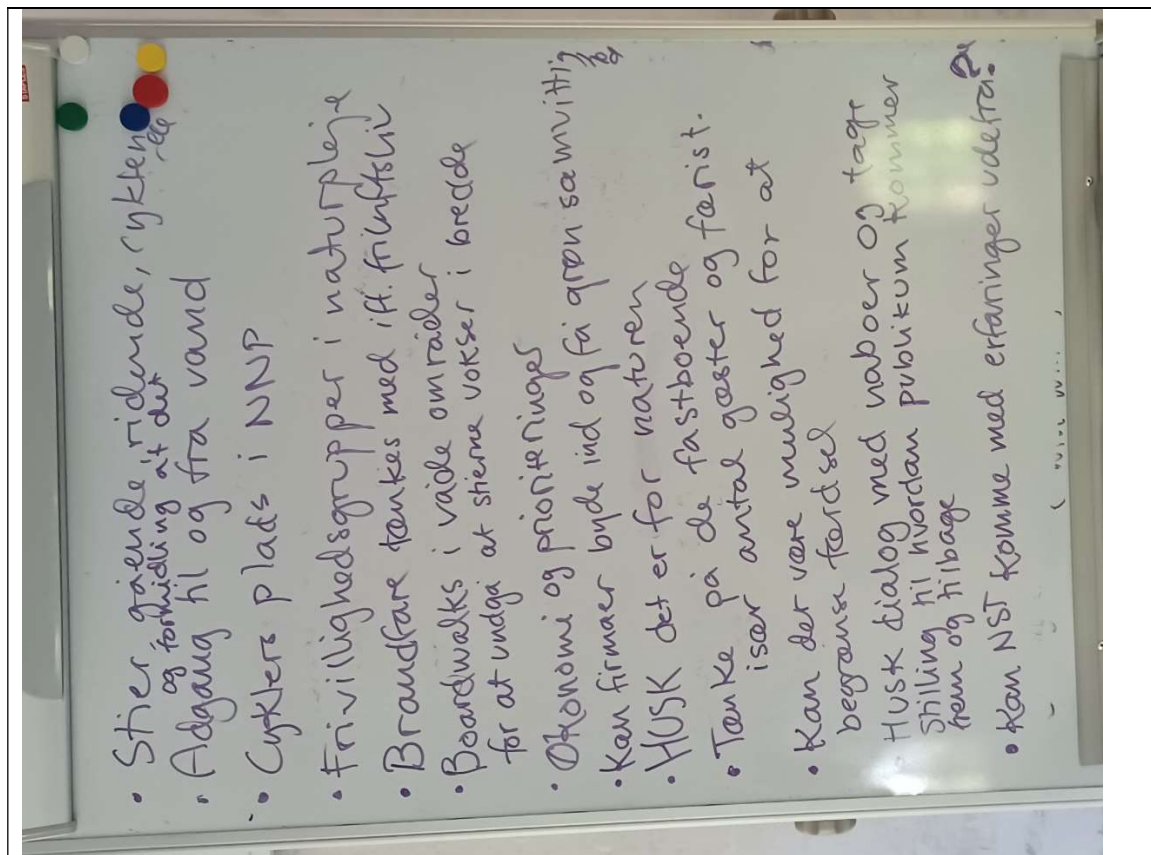 • Stier gående, ridende, cyklende
og formidling af det
• Adgang til og fra vand
• Cyklers plads i NNP
• Frivillighedsgrupper i naturpleje
• Brandfare tænkes med ift. friluftsliv
• Boardwalks i våde områder
for at undgå at stierne vokser i bredde
• Økonomi og prioriteringer
• Kan firmaer byde ind og få grøn samvittig
• HUSK det er for naturen
• Tænke på de fastboende
især antal gæster og færist.
• Kan der være mulighed for at
begrænse færdsel
• Husk dialog med naboer og tage
stilling til hvordan publikum kommer
frem og tilbage
• Kan NST komme med erfaringer udefra?